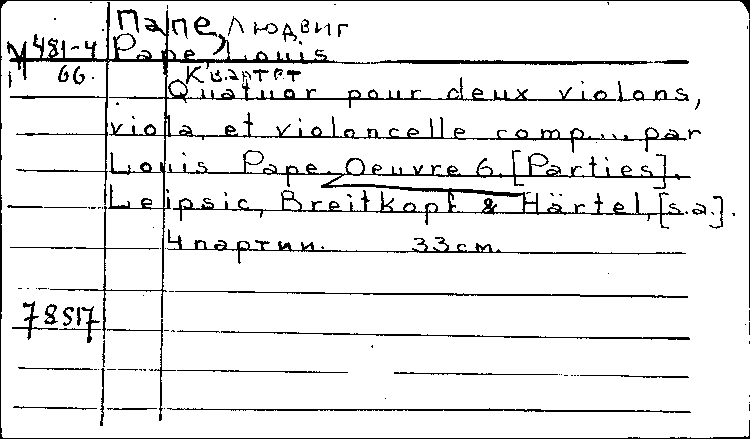 Папе, Людвиг
М 481-4 Pape, Louis
66. Квартет
Quatuor pour deux violons,
viola et violoncelle comp... par
Louis Pape. Oeuvre 6. [Parties].
Leipsic, Breitkopf & Härtel, [s.a.].
4 партии. 33 см.
78517